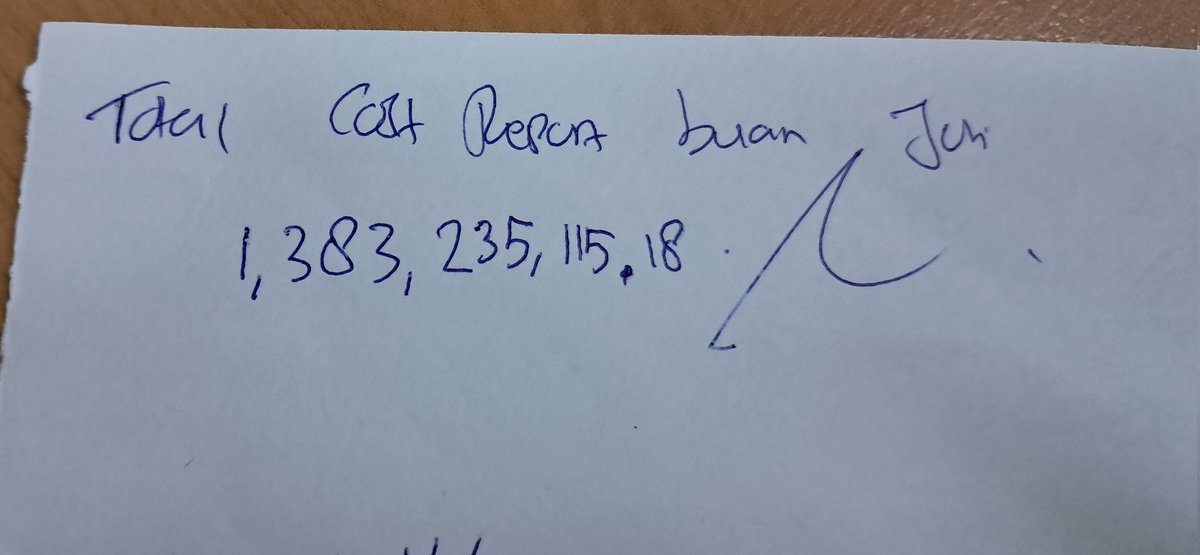 Total Cost Report buan Juni
1,383,235,115.18